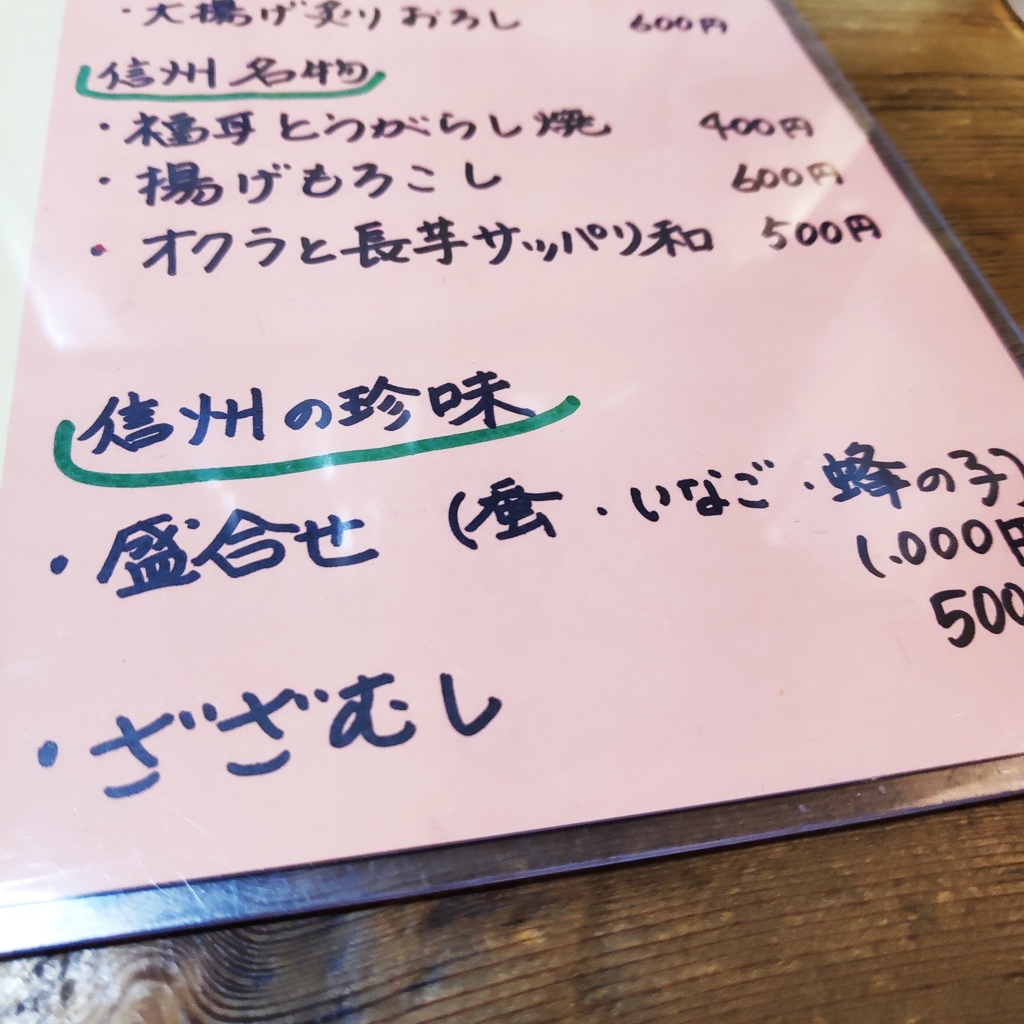 ・大揚げ炙りおろし 600円
信州名物
・福耳とうがらし焼 400円
・揚げもろこし 600円
・オクラと長芋サッパリ和 500円
信州の珍味
・盛合せ (蚕・いなご・蜂の子)
1.000円
500
・ざざむし